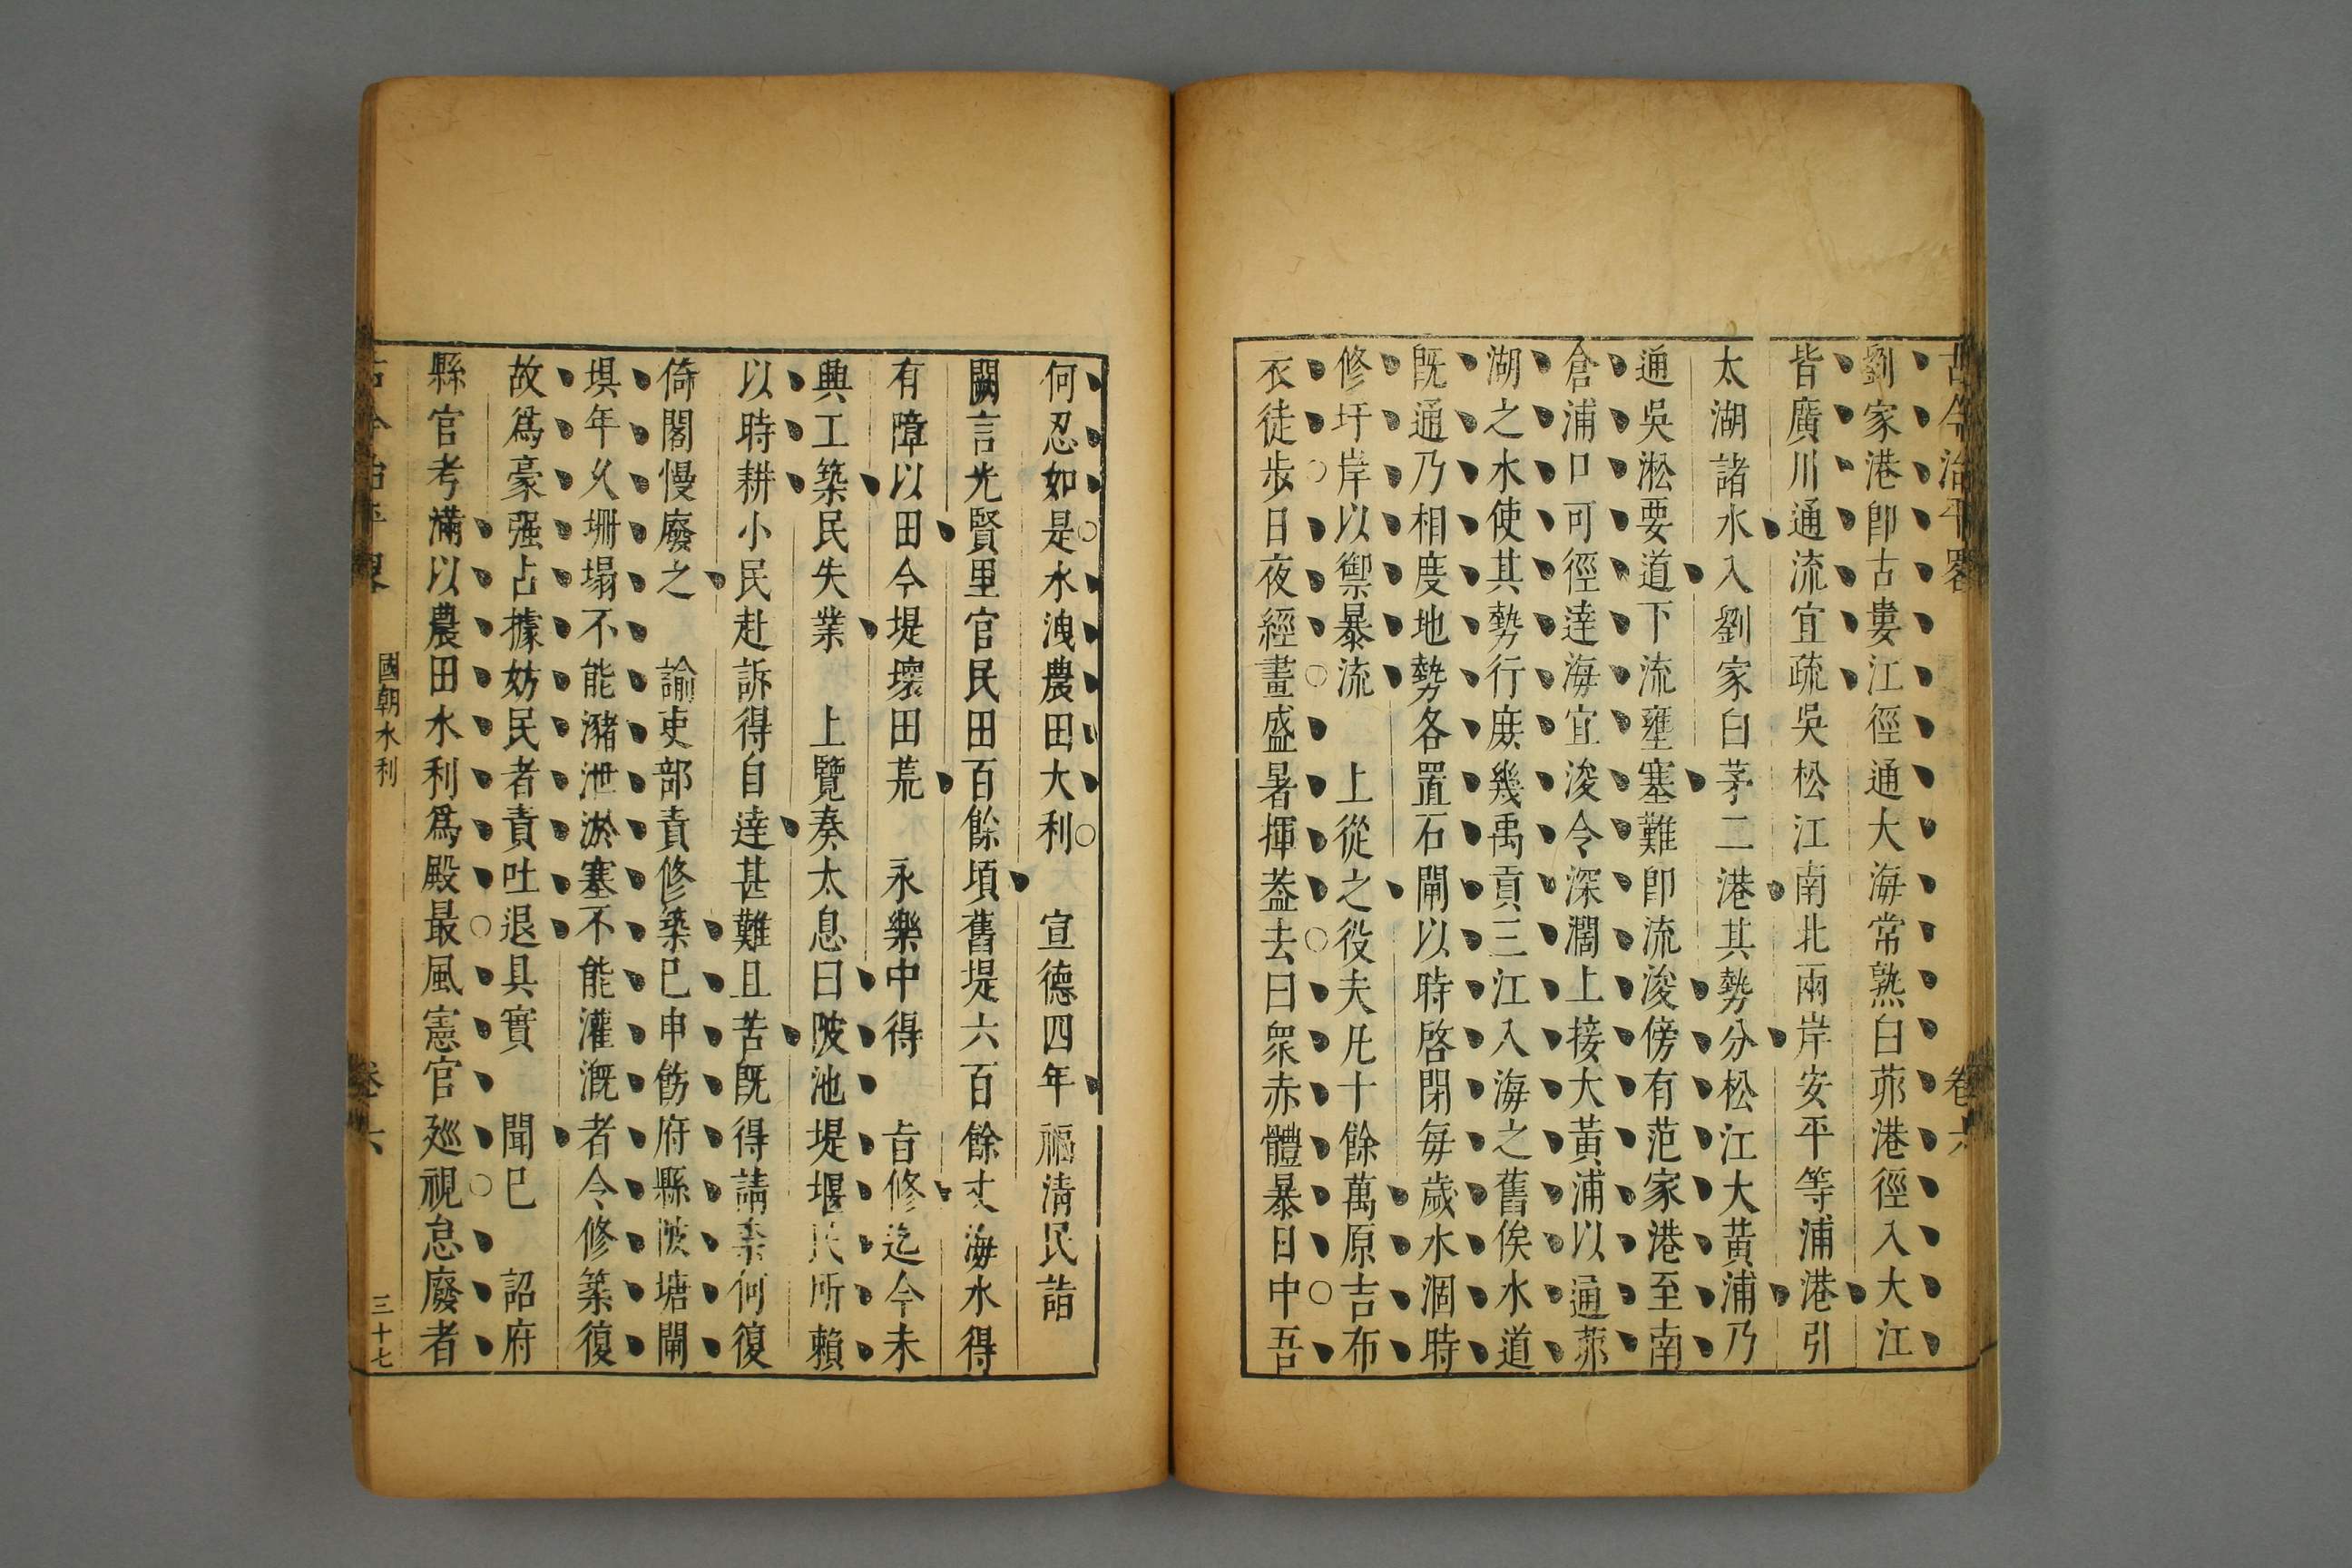 古今治平畧 卷六
劉家港卽古婁江徑通大海常熟白茆港徑入大江
皆廣川通流宜疏吳松江南北兩岸安平等浦港引
太湖諸水入劉家白茅二港其勢分松江大黃浦乃
通吳淞要道下流壅塞難卽流浚傍有范家港至南
倉浦口可徑達海宜浚令深濶上接大黃浦以通茆
湖之水使其勢行庶幾禹貢三江入海之舊俟水道
旣通乃相度地勢各置石閘以時啓閉每歲水涸時
修圩岸以禦暴流 上從之役夫凡十餘萬原吉布
衣徒步日夜經畫盛暑揮葢去曰衆赤體暴日中吾
何忍如是水洩農田大利 宣德四年福淸民詣
闕言光賢里官民田百餘頃舊堤六百餘丈海水得
有障以田今堤壞田荒 永樂中得 㫖修迄今未
興工築民失業 上覽奏太息曰陂池堤堰民所賴
以時耕小民赴訴得自達甚難且苦旣得請柰何復
倚閣慢廢之 諭吏部責修築已申飭府縣陂塘閘
埧年久坍塌不能瀦泄淤塞不能灌漑者令修築復
故爲豪强占據妨民者責吐退具實 聞已 詔府
縣官考滿以農田水利爲殿最風憲官廵視怠廢者
古今治平畧 國朝水利 卷六 三十七